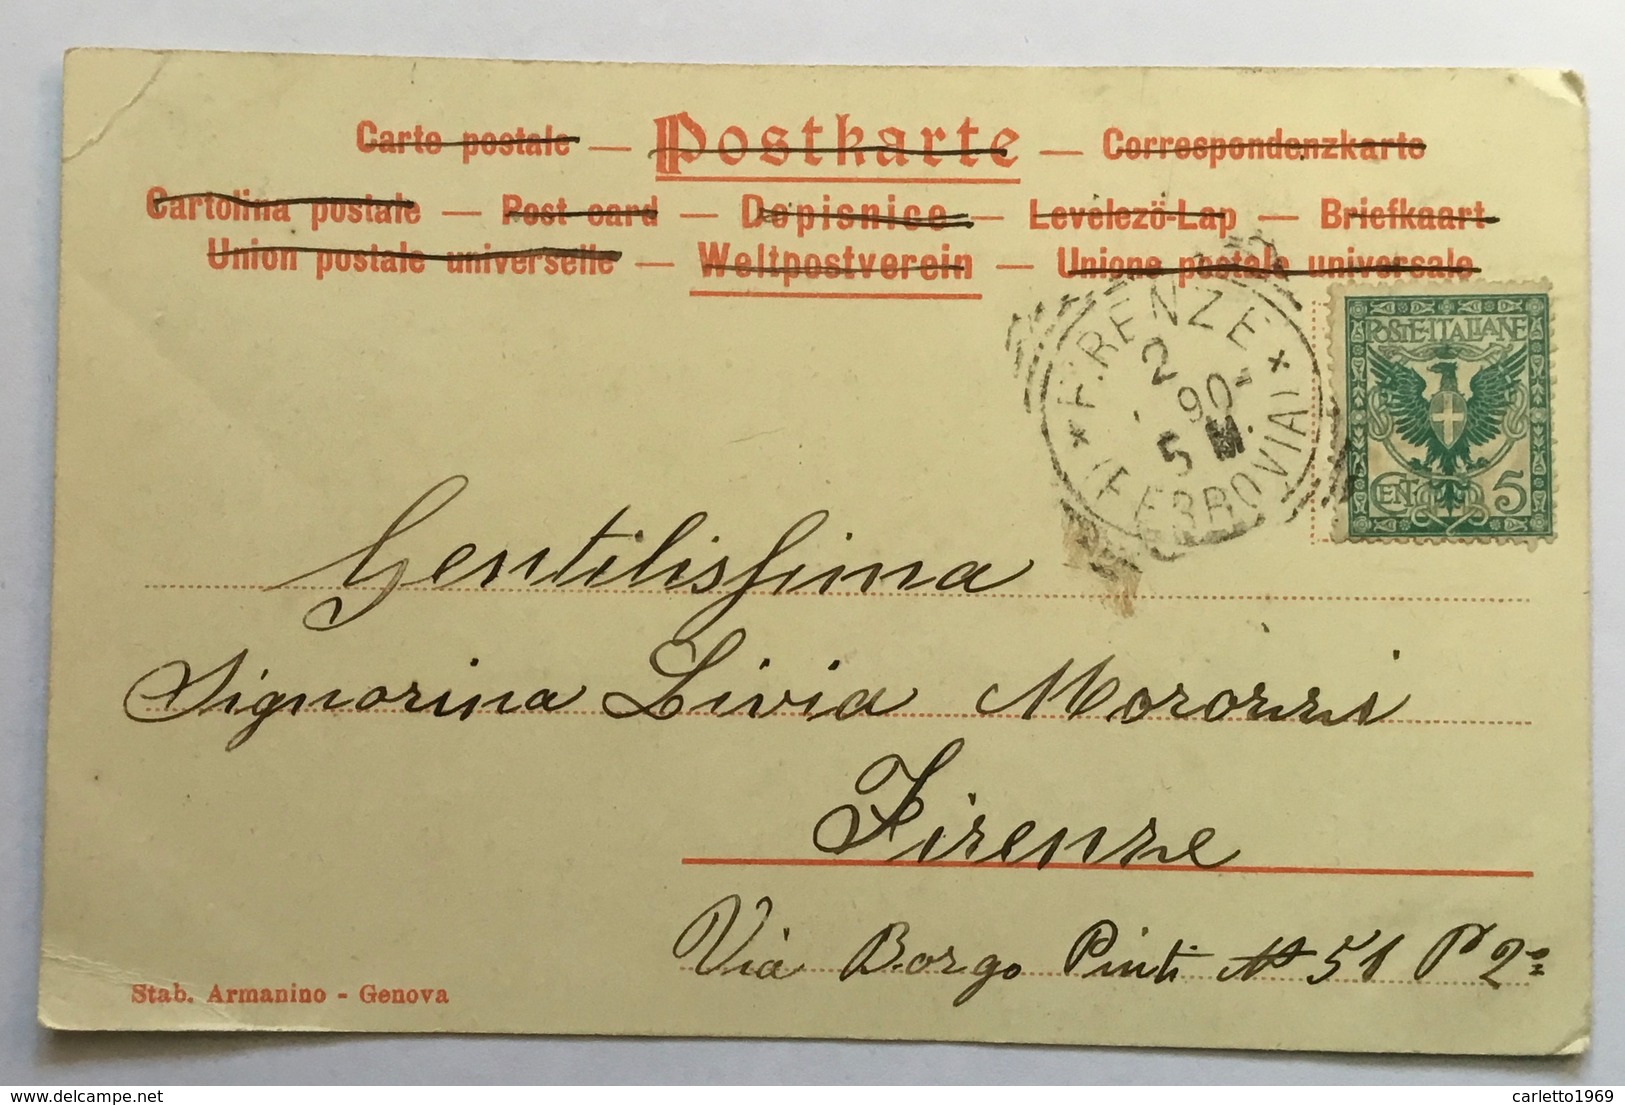 Carte postale — Postkarte — Correspondenzkarte
Cartolina postale — Post card — Dopisnice — Levelező-Lap — Briefkaart
Union postale universelle — Weltpostverein — Unione postale universale
FIRENZE
2
90
5 M.
(FERROVIA)
POSTE·ITALIANE
CEN. 5
Gentilissima
Signorina Livia Morozzi
Firenze
Via Borgo Pinti N 51 P 2º
Stab. Armanino - Genova
www.delcampe.net
carletto1969